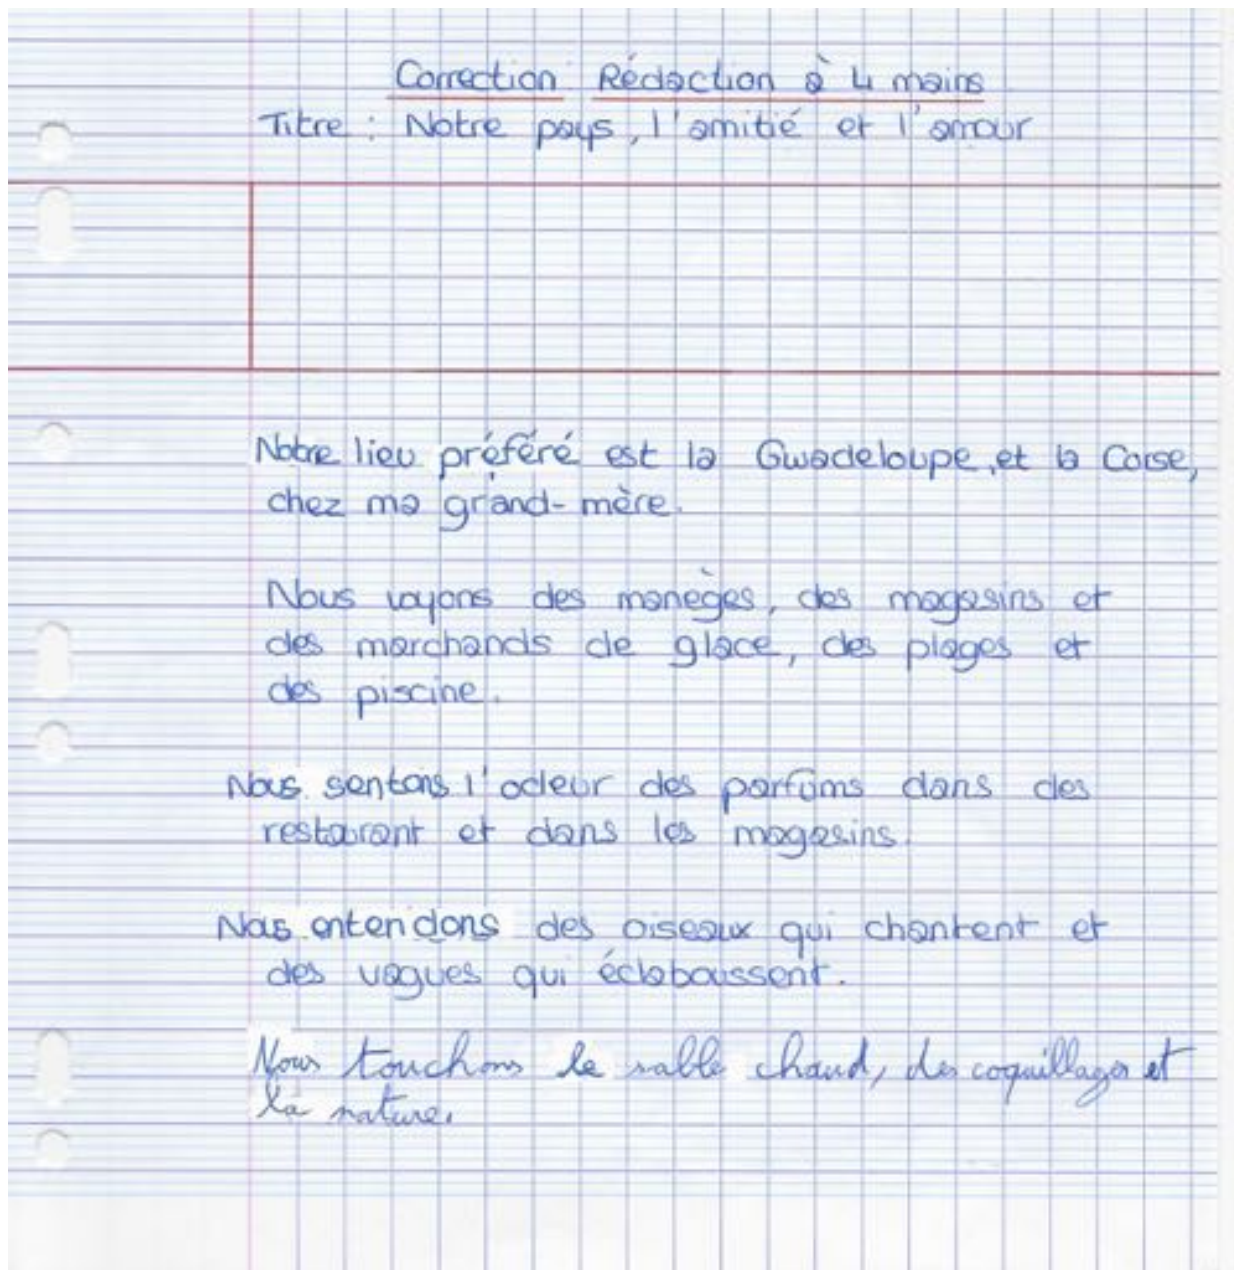 Correction Rédaction à 4 mains
Titre : Notre pays, l'amitié et l'amour
Notre lieu préféré est la Guadeloupe, et la Corse,
chez ma grand-mère.
Nous voyons des manèges, des magasins et
des marchands de glace, des plages et
des piscine.
Nous sentons l'odeur des parfums dans des
restaurant et dans les magasins.
Nous entendons des oiseaux qui chantent et
des vagues qui éclaboussent.
Nous touchons le sable chaud, des coquillages et
la nature.